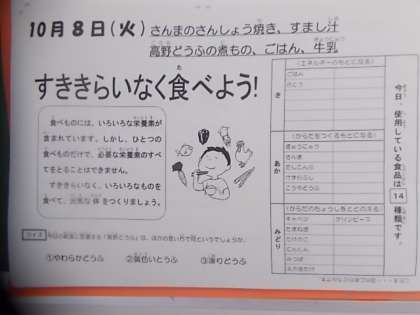 10月8日(火) さんまのさんしょう焼き、すまし汁
高野どうふの煮もの、ごはん、牛乳
すききらいなく食べよう!
食べものには、いろいろな栄養素が
含まれています。しかし、ひとつの
食べものだけで、必要な栄養素のすべ
てをとることはできません。
すききらいなく、いろいろなものを
食べて、元気な体をつくりましょう。
クイズ
①やわらかどうふ ②黄色いとうふ ③凍りどうふ
(エネルギーのもとになる)
き
ごはん
さとう
(からだをつくるもとになる)
あか
ぎゅうにゅう
さんま
こうやどうふ
(からだのちょうしをととのえる)
みどり
キャベツ グリンピース
たまねぎ
たけのこ
にんじん
みつば
今日、使用している食品は
14
種類です。